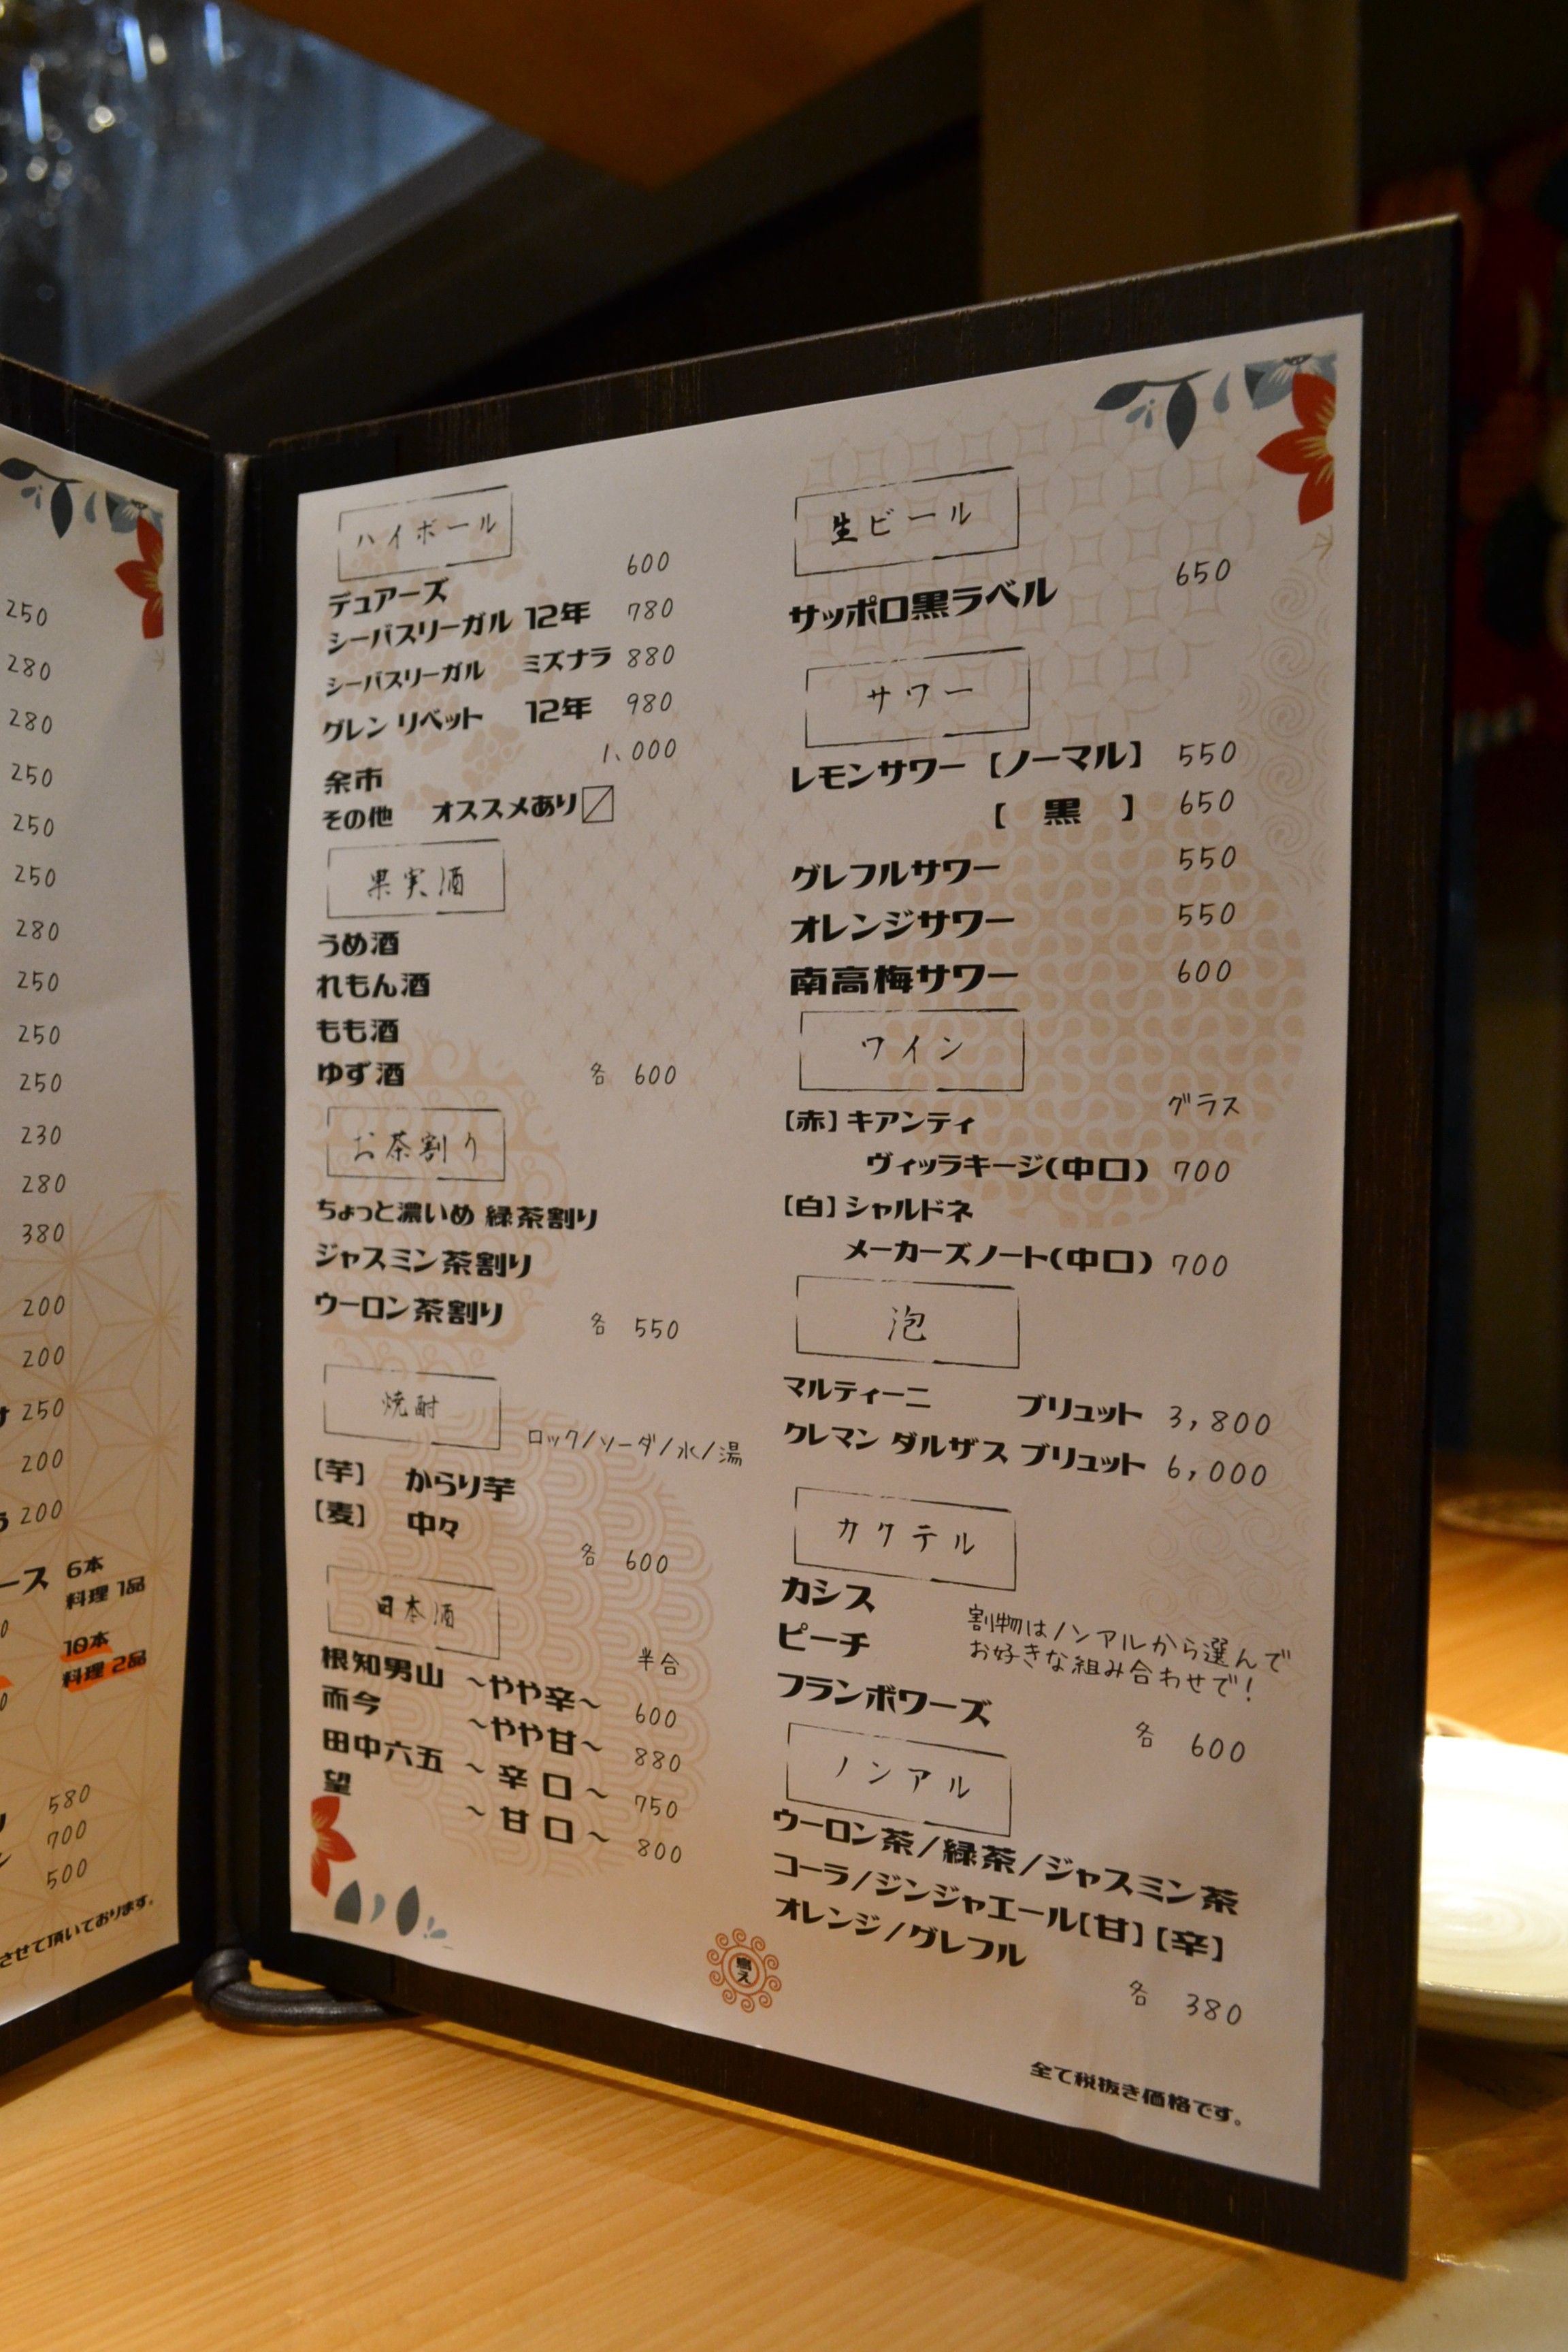 250
280
280
250
250
250
280
250
250
250
230
280
380
200
200
250
200
200
ース 6本
料理 1品
10本
料理 2品
580
700
500
させて頂いております。
ハイボール
デュアーズ 600
シーバスリーガル 12年 780
シーバスリーガル ミズナラ 880
グレン リベット 12年 980
余市 1,000
その他 オススメあり
果実酒
うめ酒
れもん酒
もも酒
ゆず酒 各 600
お茶割り
ちょっと濃いめ 緑茶割り
ジャスミン茶割り
ウーロン茶割り 各 550
焼酎 ロック/ソーダ/水/湯
【芋】 からり芋
【麦】 中々
各 600
日本酒 半合
根知男山 ~やや辛~ 600
而今 ~やや甘~ 880
田中六五 ~辛口~ 750
望 ~甘口~ 800
生ビール
サッポロ黒ラベル 650
サワー
レモンサワー 【ノーマル】 550
【 黒 】 650
グレフルサワー 550
オレンジサワー 550
南高梅サワー 600
ワイン
グラス
【赤】キアンティ
ヴィッラキージ(中口) 700
【白】シャルドネ
メーカーズノート(中口) 700
泡
マルティーニ ブリュット 3,800
クレマン ダルザス ブリュット 6,000
カクテル
カシス
ピーチ
フランボワーズ
割物はノンアルから選んで
お好きな組み合わせで!
各 600
ノンアル
ウーロン茶/緑茶/ジャスミン茶
コーラ/ジンジャエール【甘】【辛】
オレンジ/グレフル
各 380
鳥え
全て税抜き価格です。